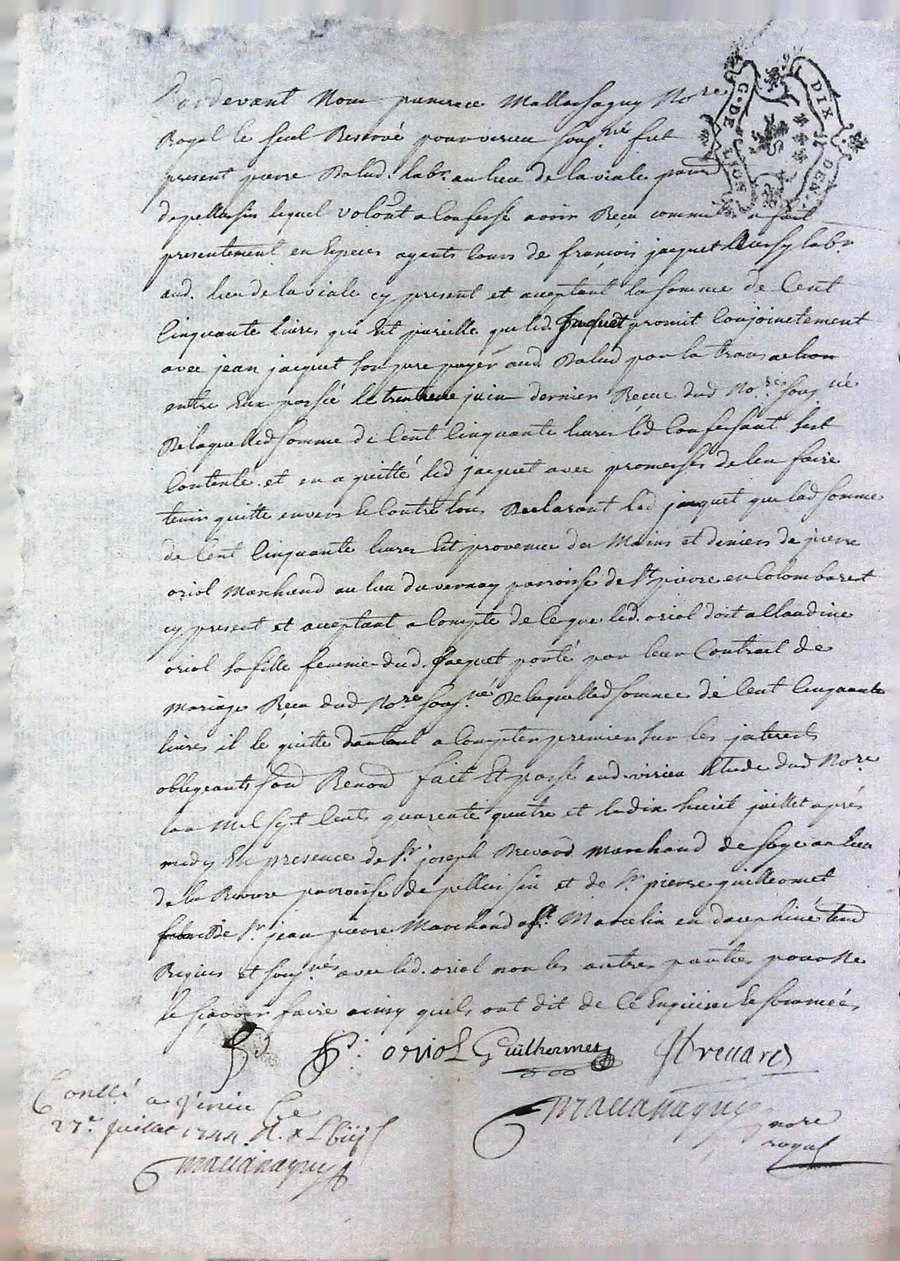 G. DE LION DIX DEN.
Pardevant Nous Mallassagny No.re
Royal le seul Reservé pour virieu sous.né fut
present pierre Balud. lab.r au lieu de la viale par.
de pellussin lequel volont. a confessé avoir Reçu comme fait
presentement en Especes ayants cours de françois jacquet lab.r
aud. lieu de la viale cy present et acceptant la somme de Cent
Cinquante livres qui Est pareille que led. Jacquet promit Conjointement
avec jean jacquet son pere payer aud. Balud par la transaction
entre Eux passée le juin dernier Recue dud. No.re sous.né
De laquelled. somme de Cent Cinquante livres led. Confessant sest
Contenté. et en a quitté led. jacquet avec promesses de len faire
tenir quitte envers et Contre tous Declarant led. jacquet que lad. somme
de Cent Cinquante livres Est provenue des Mains et deniers de pierre
oriol Marchand au lieu du vernay parroisse de St. pierre en Colombaret
cy present et acceptant a Compte de Ce que led. oriol doit a Claudine
oriol sa fille femme dud. Jacquet porté par leur Contract de
Mariage Reçu dud. No.re sous.né De laquelled. somme de Cent Cinquante
livres il le quitte dautant a Compte premier sur les
obligeants fait Et passé aud. virieu Etude dud. No.re
lan Mil Sept Cents quarente quatre et le dix huit juillet après
midy En presence de S.r joseph Revard Marchand de soye au lieu
de la parroisse de pellussin et de S.r pierre guilleomet
De S.r jean pierre Marchand a St. Marcelin en dauphiné
Requis et sous.nés avec led. oriol non les autres parties pour ne
le sçavoir faire ainsy quils ont dit de Ce Enquises Et sommées
P. oriol Guilhermet J Revard
Mallassagny
nore
royal
Conllé a Virieu Le
27.e Juillet 1744. R.
Mallassagny